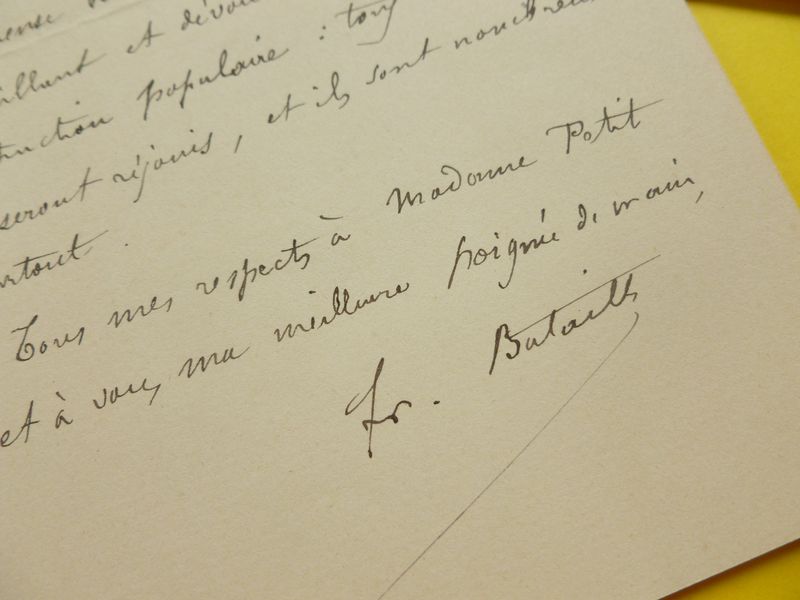 et dévou
populaire : tous
seront réjouis, et ils sont nombreux
partout.
Tous mes respects à Madame Petit
et à vous, ma meilleure poignée de main,
Fr. Bataille